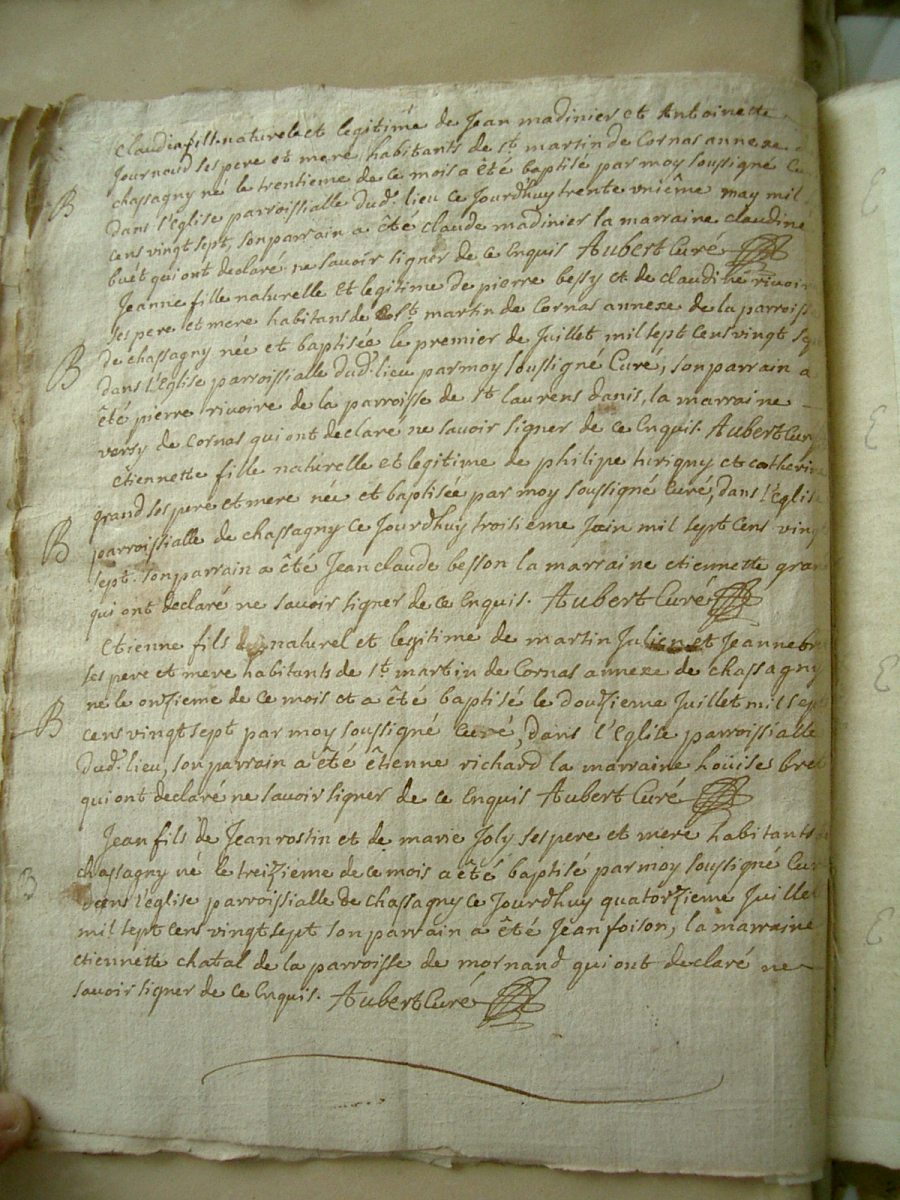 Claudia fille naturele et legitime de Jean madinier et Antoinette
Journaud ses pere et mere, habitants de st martin de Cornas annexe
chassagny né le trentieme de ce mois a êté baptisé par moy soussigné
dans l'Eglise parroissialle dud. lieu ce Jourd'huy trente vniême may mil
cens vingt sept, son parrain a êté claude madinier la marraine claudine
buët qui ont declaré ne savoir signer de ce Enquis Aubert Curé
Jeanne fille naturelle Et legitime de pierre bessy et de claudine rivoir
ses pere et mere habitans de st. martin de Cornas annexe de la parroiss
de chassagny née et baptisée le premier de Juillet mil sept cens vingt sep
B
dans l'Eglise parroissialle dud. lieu par moy soussigné Curé, son parrain a
été pierre rivoire de la parroisse de st laurens danis, la marraine
versy de Cornas qui ont declaré ne savoir signer de ce Enquis. Aubert Curé
étiennette fille naturelle et legitime de philipe turigny et catherine
grand ses pere et mere née et baptisée par moy soussigné Curé, dans l'Eglise
B
parroissialle de chassagny ce Jourdhuy troisiéme Juin mil sept cens ving
sept. son parrain a ête Jean claude besson la marraine etiennette gran
qui ont declaré ne savoir signer de ce Enquis. Aubert Curé
Etienne fils naturel et legitime de martin Julien et Jeanne
ses pere et mere habitants de st. martin de Cornas annexe de chassagny
ne le onzieme de ce mois et a êté baptisé le douzieme Juillet mil sept
B
cens vingt sept par moy soussigné Curé, dans l'Eglise parroissialle
dud. lieu, son parrain a été étienne richard la marraine hoüises
qui ont declaré ne savoir signer de ce Enquis Aubert Curé
Jean fils de Jean rostin et de marie Joly ses pere et mere habitants
B
chassagny né le treizieme de ce mois a êté baptisé par moy soussigné Cur
dans l'eglise parroissialle de chassagny ce Jourdhuy quatorzieme Juillet
mil sept cens vingt sept son parrain a été Jean foison, la marraine
etiennette chatal de la parroisse de mornand qui ont declaré ne
savoir signer de ce Enquis. Aubert Curé